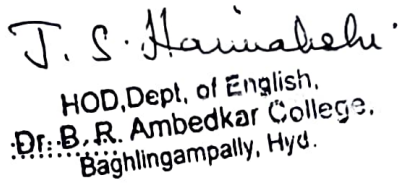 J. S.
HOD, Dept. of English,
Dr. B. R. Ambedkar College,
Baghlingampally, Hyd.